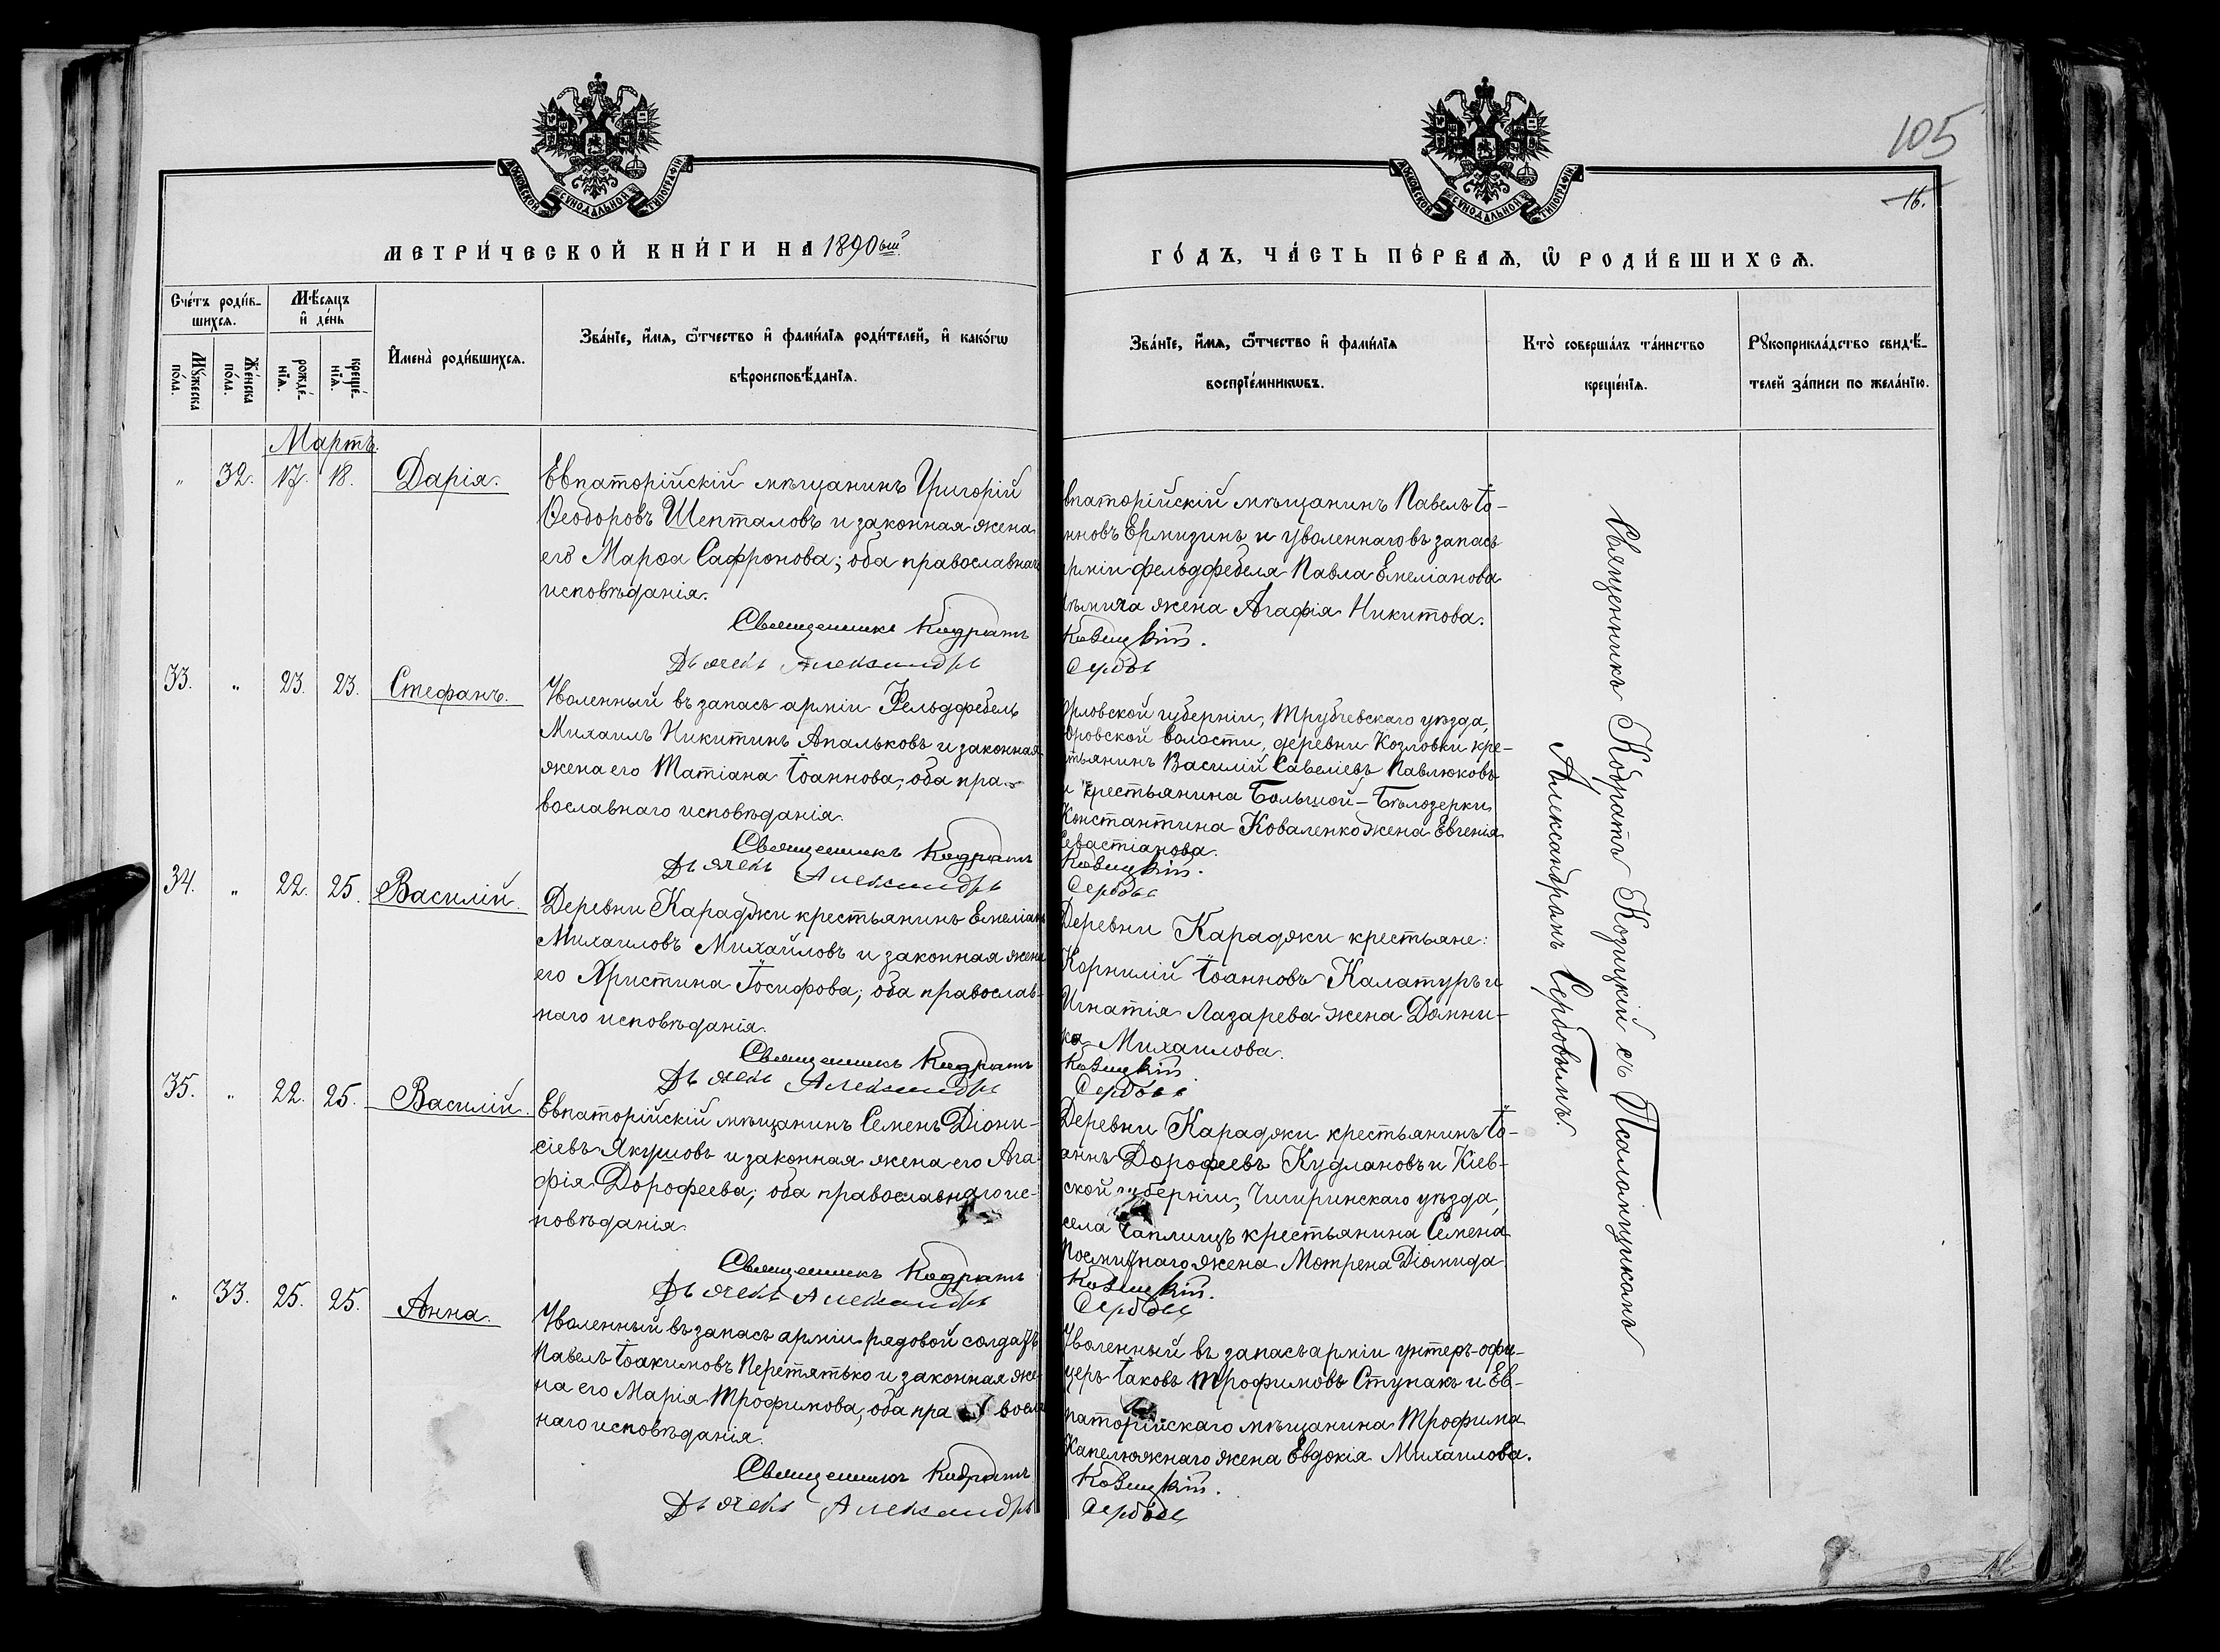 105
16.
МОСКОВСКОЙ СѴНОДАЛЬНОЙ ТИПОГРАФІИ
МОСКОВСКОЙ СѴНОДАЛЬНОЙ ТИПОГРАФІИ
МЕТРИ́ЧЕСКОЙ КНИ́ГИ НА 1890ый
ГО́ДЪ, ЧА́СТЬ ПЕ́РВАѦ, Ѡ РОДИ́ВШИХСѦ.
Сче́тъ роди́в-
шихсѧ.
Мѣ́сѧцъ
и҆ де́нь
Мꙋ́жеска по́ла.
Же́нска по́ла.
рожде́-
нїѧ.
креще́-
нїѧ.
И҆мена̀ роди́вшихсѧ.
Зва́нїе, и҆́мѧ, ѻ҆́тчество и҆ фами́лїѧ роди́телей, и҆ како́гѡ
вѣроисповѣ́данїѧ.
Зва́нїе, и҆́мѧ, ѻ҆́тчество и҆ фами́лїѧ
воспрїе́мникѡвъ.
Кто̀ соверша́лъ та́инство
креще́нїѧ.
Рꙋкоприкла́дство свидѣ́-
телей за́писи по жела́нїю.
Мартъ.
" 32. 17. 18. Дарія.
Евпаторійскій мѣщанинъ Григорій
Ѳеодоровъ Шепталовъ и законная жена
его Марѳа Сафронова; оба православнаго
исповѣданія.
Священникъ Кодратъ
Дьячекъ Александръ
впаторійскій мѣщанинъ Павелъ Іо-
нновъ Ермизинъ и уволеннаго въ запасъ
рміи фельдфебеля Павла Емеліанова
жена Агафія Никитова.
Козицкій.
Сербовъ
33. " 23. 23. Стефанъ.
Уволенный въ запасъ арміи Фельдфебель
Михаилъ Никитинъ Апальковъ и законная
жена его Татіана Іоаннова; оба пра-
вославнаго исповѣданія.
Священникъ Кодратъ
Дьячекъ Александръ
рловской губерніи, Трубчевскаго уѣзда,
ровской волости, деревни Козловки кре-
тьянинъ Василій Савеліевъ Павлюковъ
и крестьянина Большой-Бѣлозерки
Константина Коваленко жена Евгенія
Севастіанова.
Козицкій.
Сербовъ
34. " 22. 25. Василій.
Деревни Караджи крестьянинъ Емеліанъ
Михаиловъ Михайловъ и законная жена
его Христина Іосифова; оба православ-
наго исповѣданія.
Священникъ Кодратъ
Дьячекъ Александръ
Деревни Караджи крестьяне:
Корнилій Іоанновъ Калатуръ и
Игнатія Лазарева жена Домни-
ка Михаилова.
Козицкій
Сербовъ
35. " 22. 25. Василій.
Евпаторійскій мѣщанинъ Семенъ Діони-
сіевъ Якушовъ и законная жена его Ага-
фія Дорофеева; оба православнаго ис-
повѣданія.
Священникъ Кодратъ
Дьячекъ Александръ
Деревни Караджи крестьянинъ Іо-
аннъ Дорофеевъ Кудлановъ и Кіев-
ской губерніи, Чигиринскаго уѣзда,
села Чаплищъ крестьянина Семена
жена Мотрена Діомида
Козицкій.
Сербовъ
" 33. 25. 25. Анна.
Уволенный въ запасъ арміи рядовой солдатъ
Павелъ Іоакимовъ Перетятько и законная же-
на его Марія Трофимова, оба православ
наго исповѣданія.
Священникъ Кодратъ
Дьячекъ Александръ
Уволенный въ запасъ арміи унтеръ-офи-
церъ Іаковъ Трофимовъ Ступакъ и Ев-
паторійскаго мѣщанина Трофима
Капелюжнаго жена Евдокія Михаилова.
Козицкій.
Сербовъ
Священникъ Кодратъ Козицкій съ Псаломщикомъ
Александромъ Сербовымъ.